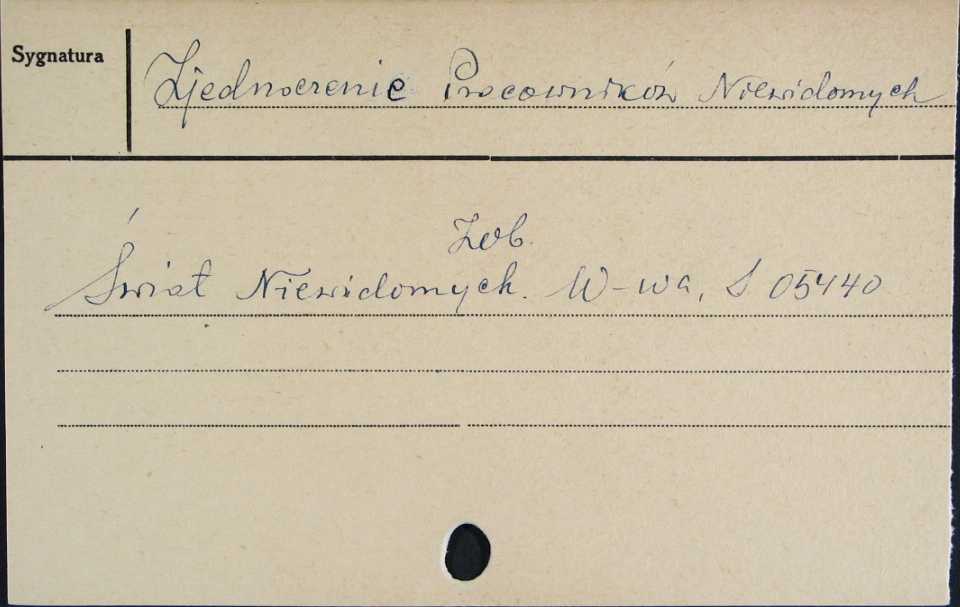 Sygnatura
Zjednoczenie Pracowników Niewidomych
Zob.
Świat Niewidomych. W-wa, S 05440